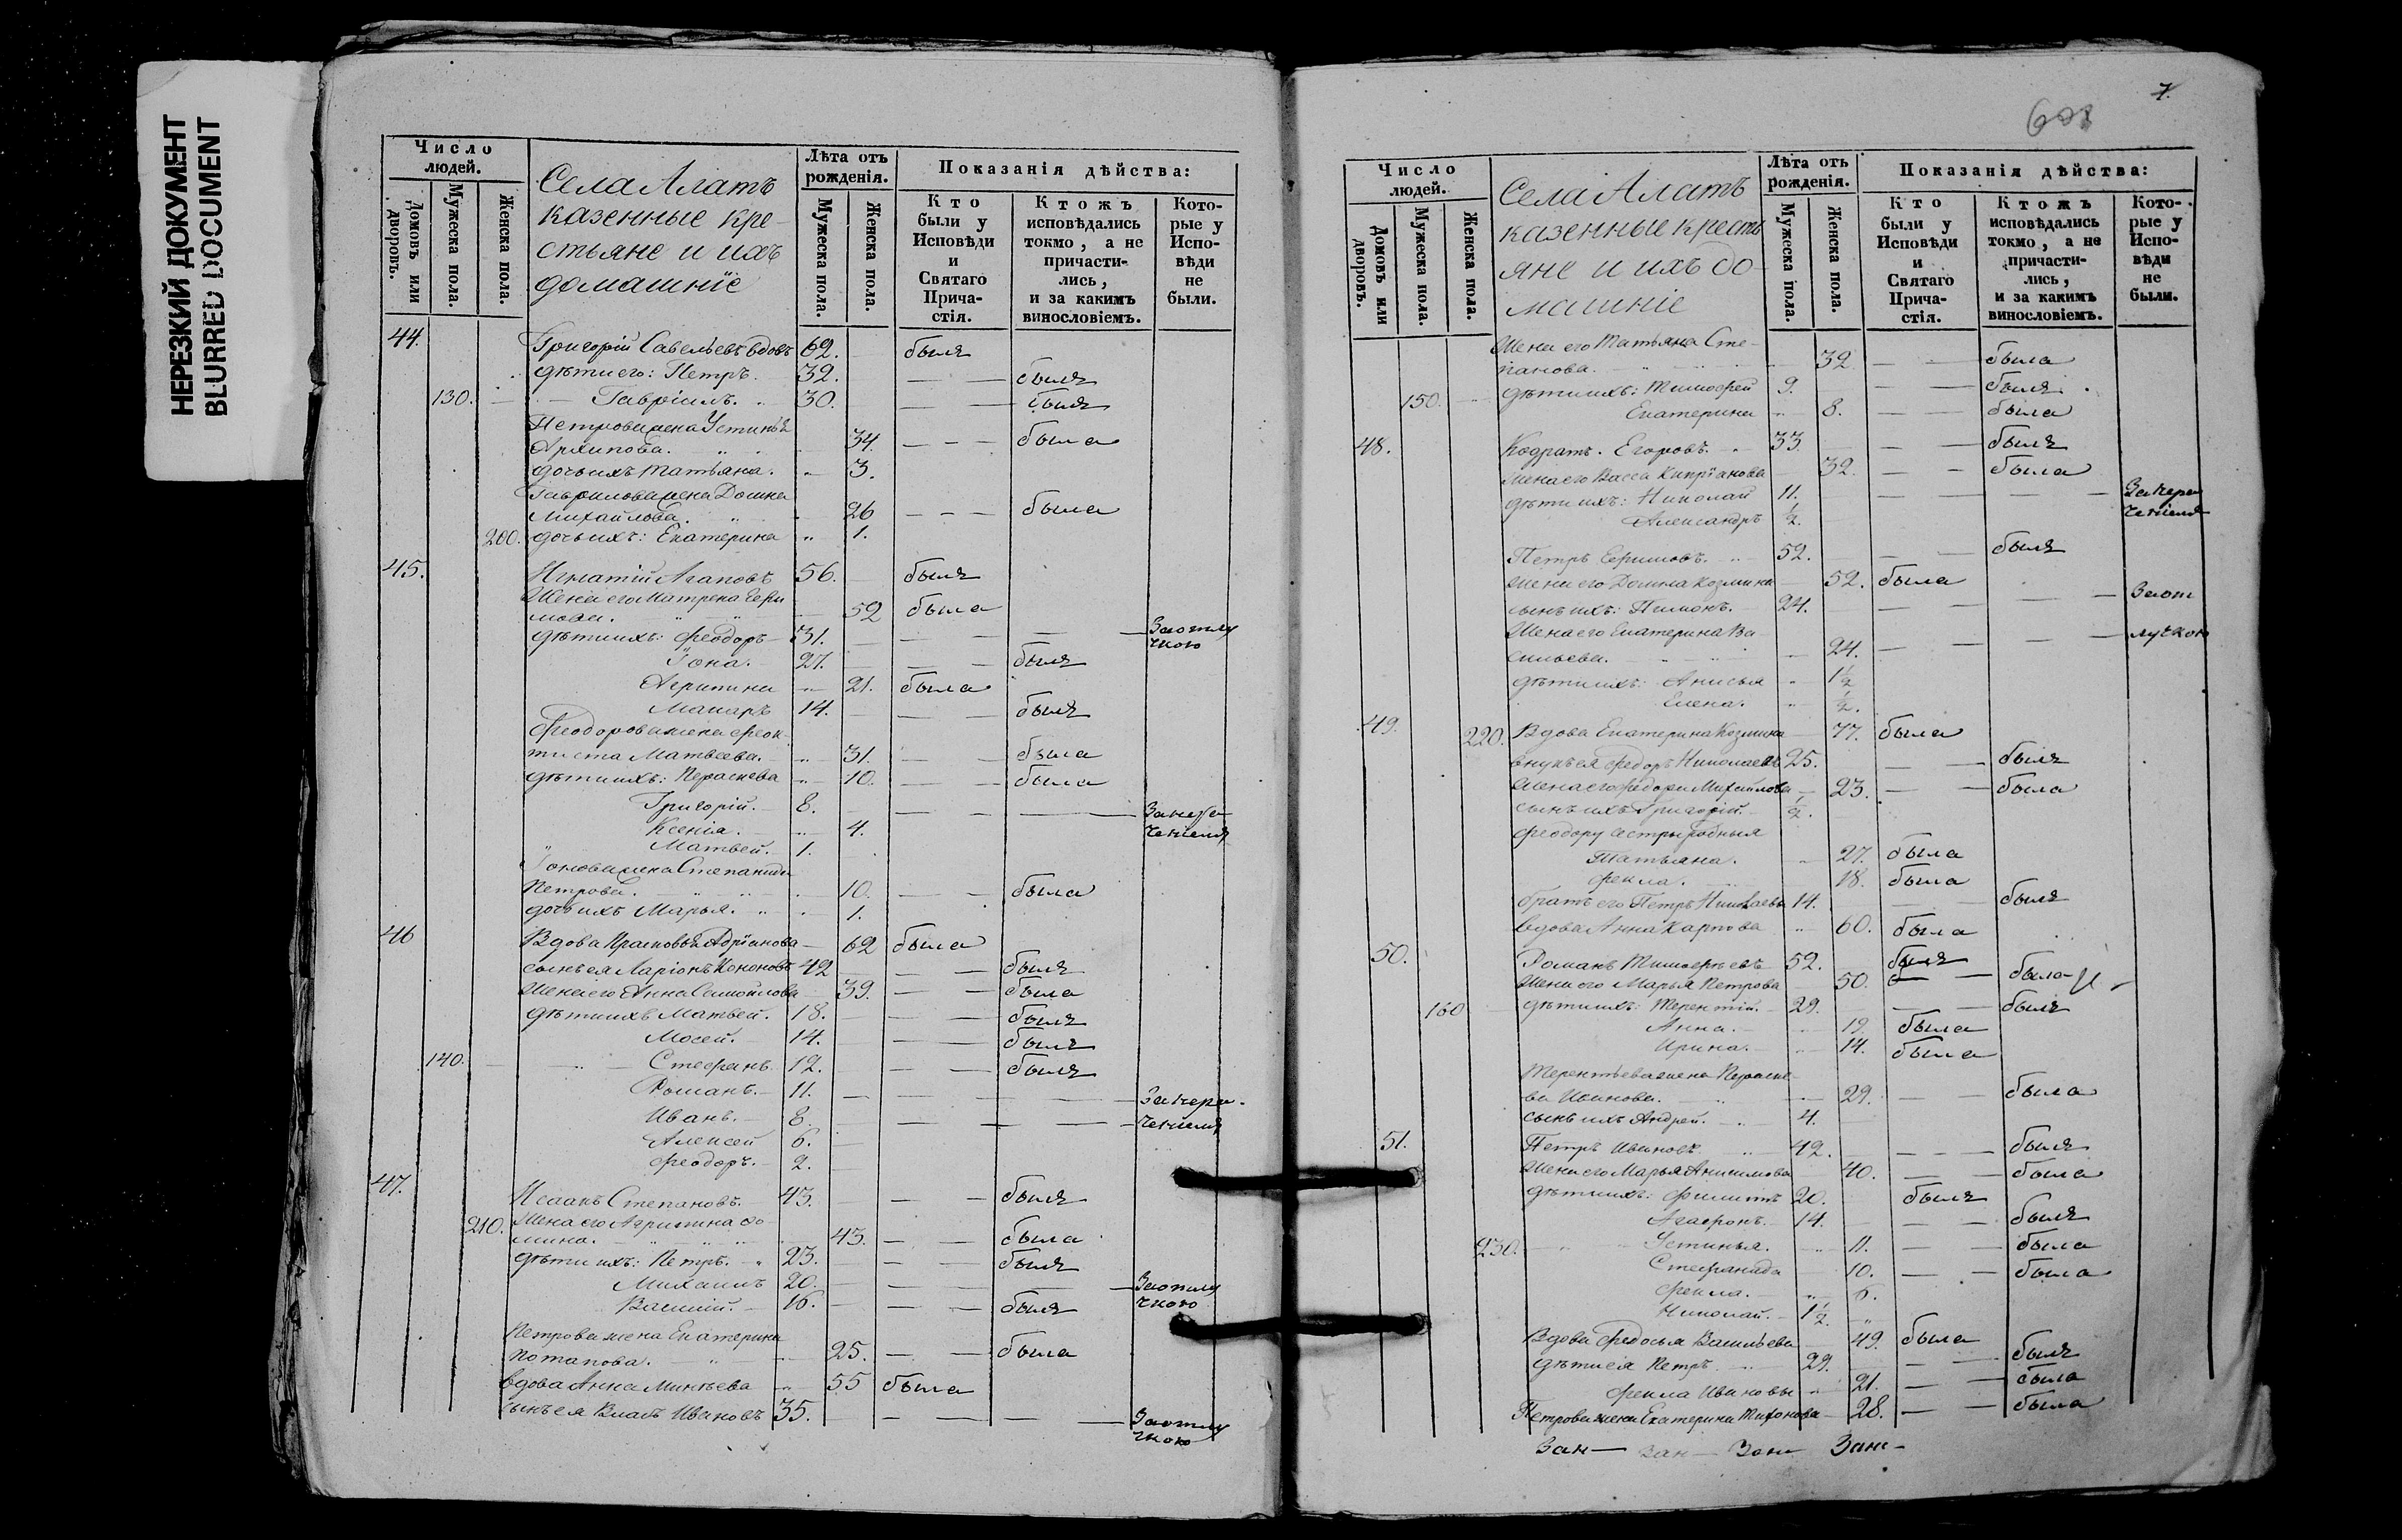 НЕРЕЗКИЙ ДОКУМЕНТ
BLURRED DOCUMENT
Число людей.
Домовъ или дворовъ.
Мужеска пола.
Женска пола.
Села Алатъ
казенные кре-
стьяне и ихъ
домашніе
Лѣта отъ рожденія.
Мужеска пола.
Женска пола.
Показанія дѣйства:
Кто были у Исповѣди и Святаго Прича-стія.
Ктожъ исповѣдались токмо, а не причасти-лись, и за какимъ винословіемъ.
Кото-рые у Испо-вѣди не были.
44. Григорій Савельевъ вдовъ 62. былъ
дѣти его: Петръ. 32. былъ
130. Гавріилъ. 30. былъ
Петрова жена Устинья
Архипова. 34. была
дочь ихъ Татьяна. 3.
Гаврилова жена Домна
Михайлова. 26 была
200. дочь ихъ: Екатерина 1.
45. Игнатій Агаповъ 56. былъ
Жена его Матрена Ефи
мова. 52 была
дѣти ихъ: Феодоръ 31. За отлу
чкою
Іона. 27. былъ
Агрипина 21. была
Макаръ 14. былъ
Феодорова жена Феок-
тиста Матвеева. 31. была
дѣти ихъ: Параскева 10. была
Григорій. 8. За нера
чениемъ
Ксенія. 4.
Матвей. 1.
Іонова жена Степанида
Петрова. была
дочь ихъ Марья. 1.
46 Вдова Прасковья Адріанова 62 была
сынъ ея Ларіонъ Кононовъ 42 былъ
Жена его Анна Самойлова 39. была
дѣти ихъ Матвей. 18. былъ
Мосей. 14. былъ
140. Стефанъ. 12. былъ
Романъ. 11. За нера-
Иванъ. 8. чениемъ
Алексей 6.
Феодоръ. 2.
47. Исаакъ Степановъ. 43. былъ
210. Жена его Агрипина Фо-
мина. 43. была
дѣти ихъ: Петръ. 23. былъ
Михаилъ 20. За отлу
чкою
Василій. 16. былъ
Петрова жена Екатерина
Потапова. 25. была
вдова Анна Минѣева 55 была
сынъ ея Власъ Ивановъ 35. За отлу
чкою
7.
Число людей.
Домовъ или дворовъ.
Мужеска пола.
Женска пола.
Села Алатъ
казенные кресть
яне и ихъ до-
машніе
Лѣта отъ рожденія.
Мужеска пола.
Женска пола.
Показанія дѣйства:
Кто были у Исповѣди и Святаго Прича-стія.
Ктожъ исповѣдались токмо, а не причасти-лись, и за какимъ винословіемъ.
Кото-рые у Испо-вѣди не были.
Жена его Татьяна Сте-
панова. 32 была
150. дѣти ихъ: Тимофей 9. былъ
Екатерина 8. была
48. Кодратъ. Егоровъ. 33. былъ
Жена его Васса Кипріанова 32. была
дѣти ихъ: Николай 11. За нера
чениемъ
Александръ ½.
Петръ Ефимовъ. 52. былъ
Жена его Домна Козмина 52. была
сынъ ихъ: Пимонъ. 24. За от
Жена его Екатерина Ва- лучкою
сильева. 24.
дѣти ихъ: Анисья 1½
Елена. ½.
49. 220. Вдова Екатерина Козмина 77. была
внукъ ея Федоръ Николаевъ 25. былъ
Жена его Федора Михайлова 23. была
сынъ ихъ Григорій. ½.
Феодору сестры родныя
Татьяна. 27. была
Фекла. 18. была
братъ его Петръ Николаевъ 14. былъ
вдова Анна Карпова 60. была
50. Романъ Тимофеевъ 52. былъ
Жена его Марья Петрова 50. была
160 дѣти ихъ: Терентій. 29. былъ
Анна. 19. была
Ирина. 14. была
Терентьева жена Параске-
ва Иванова. 29. была
сынъ ихъ Андрей. 4.
51. Петръ Ивановъ. 42. былъ
Жена его Марья Анисимова 40. была
дѣти ихъ: Филиппъ 20. былъ
Агафонъ. 14. былъ
230. Устинья. 11. была
Стефанида 10. была
Фекла. 6.
Николай. 1½.
Вдова Федосья Васильева 49. была
дѣти ея Петръ 29. былъ
Фекла Ивановы 21. была
Петрова жена Екатерина Тихонова 28. была